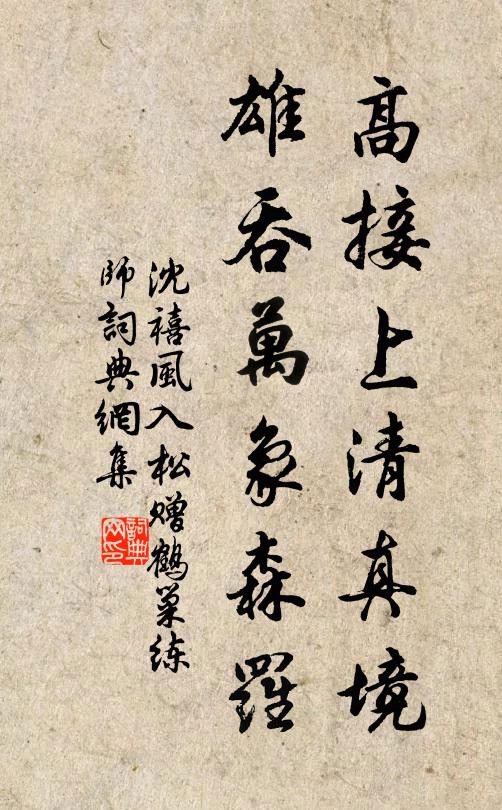 高接上清真境
雄吞萬象森羅
沈禧風入松赠鶴巢练
師詞典網集
詞典
网印